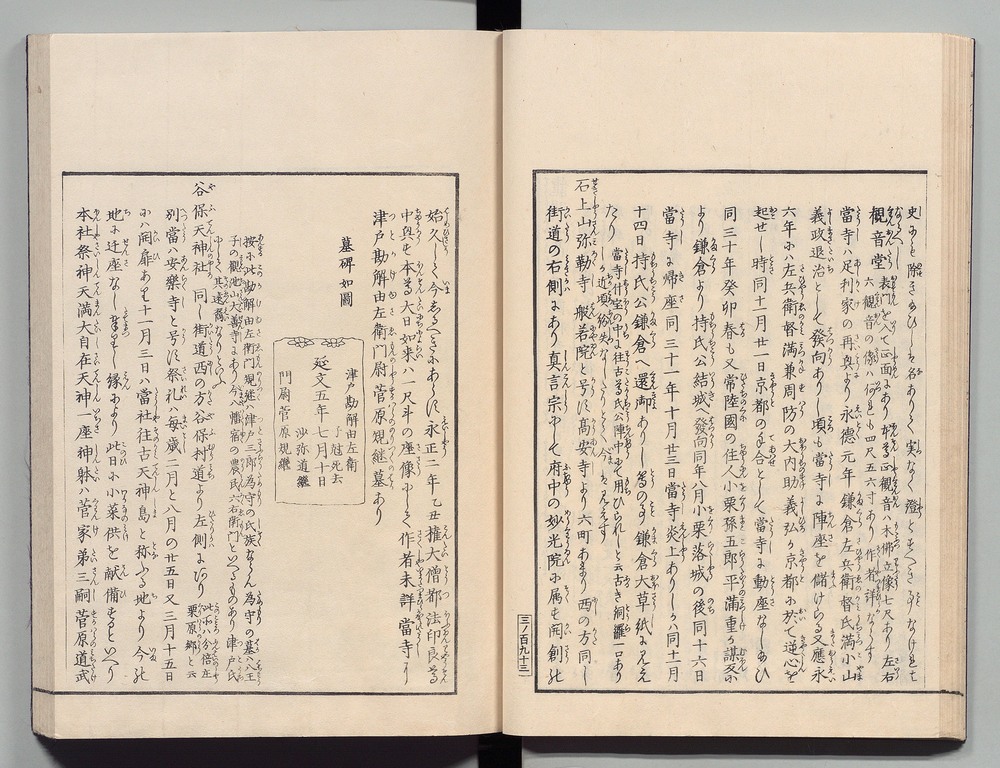 史にも除きあひしと名ありて実なく證とすへきものなけれは
觀音堂 表門を入て正面にあり本尊正觀音ハ木佛立像七尺あり左右
六觀音の像ハ何れも四尺五六寸あり作者詳ならす
當寺ハ足利家の再興より永德元年鎌倉左兵衛督氏満小山
義政退治として發向ありし頃も當寺に陣座を儲けらる又應永
六年にハ左兵衛督満兼周防の大内助義弘か京都に於て逆心を
起せし時同十一月廿一日京都の手合として當寺に動座なしあひ
同三十年癸卯春も又常陸國の住人小栗孫五郎平満重か謀叛に
より鎌倉より持氏公結城へ發向同年八月小栗落城の後同十六日
當寺に帰座同三十一年十月廿三日當寺炎上ありしかハ同十一月
十四日持氏公鎌倉へ還御ありし等の事鎌倉大草紙に見え
たり 當寺什宝の中に往古尊氏公陣中に用ひられしと云古き銅羅一口あり
近頃紛失なしたりとて今ハ見えす
石上山弥勒寺 般若院と号す高安寺より六町あまり西の方同し
街道の右側にあり真言宗にして府中の妙光院に属す開創は
三ノ百九十三
始久しく今知るへきにあらす永正二年乙丑権大僧都法印良尊
中興す本尊大日如來ハ一尺斗の座像にして作者未詳當寺に
津戸勘解由左衛門尉菅原規継墓あり
墓碑如圖
津戸勘解由左衛
于尅死去
延文五年七月十日
沙弥道継
門尉菅原規継
按に此勘解由左衛門規継ハ津戸三郎為守の氏族ならん為守の墓ハ八王
子の觀池山大善寺にあり今ハ幡宿の農民六右衛門といへるものあり津戸氏
にして其遠裔なりといふ
谷保天神社 同し街道西の方谷保村道より左側にあり 此所ハ分倍庄
栗原郷と云
別當ハ安樂寺と号す祭礼ハ毎歳二月と八月の廿五日又三月十五日
にハ開扉あり十一月三日ハ當社往古天神島と称ふる地より今の
地に迁座なし奉りし縁により此日に小菜供を献備するといへり
本社祭神天満大自在天神一座神躰ハ菅家第三嗣菅原道武